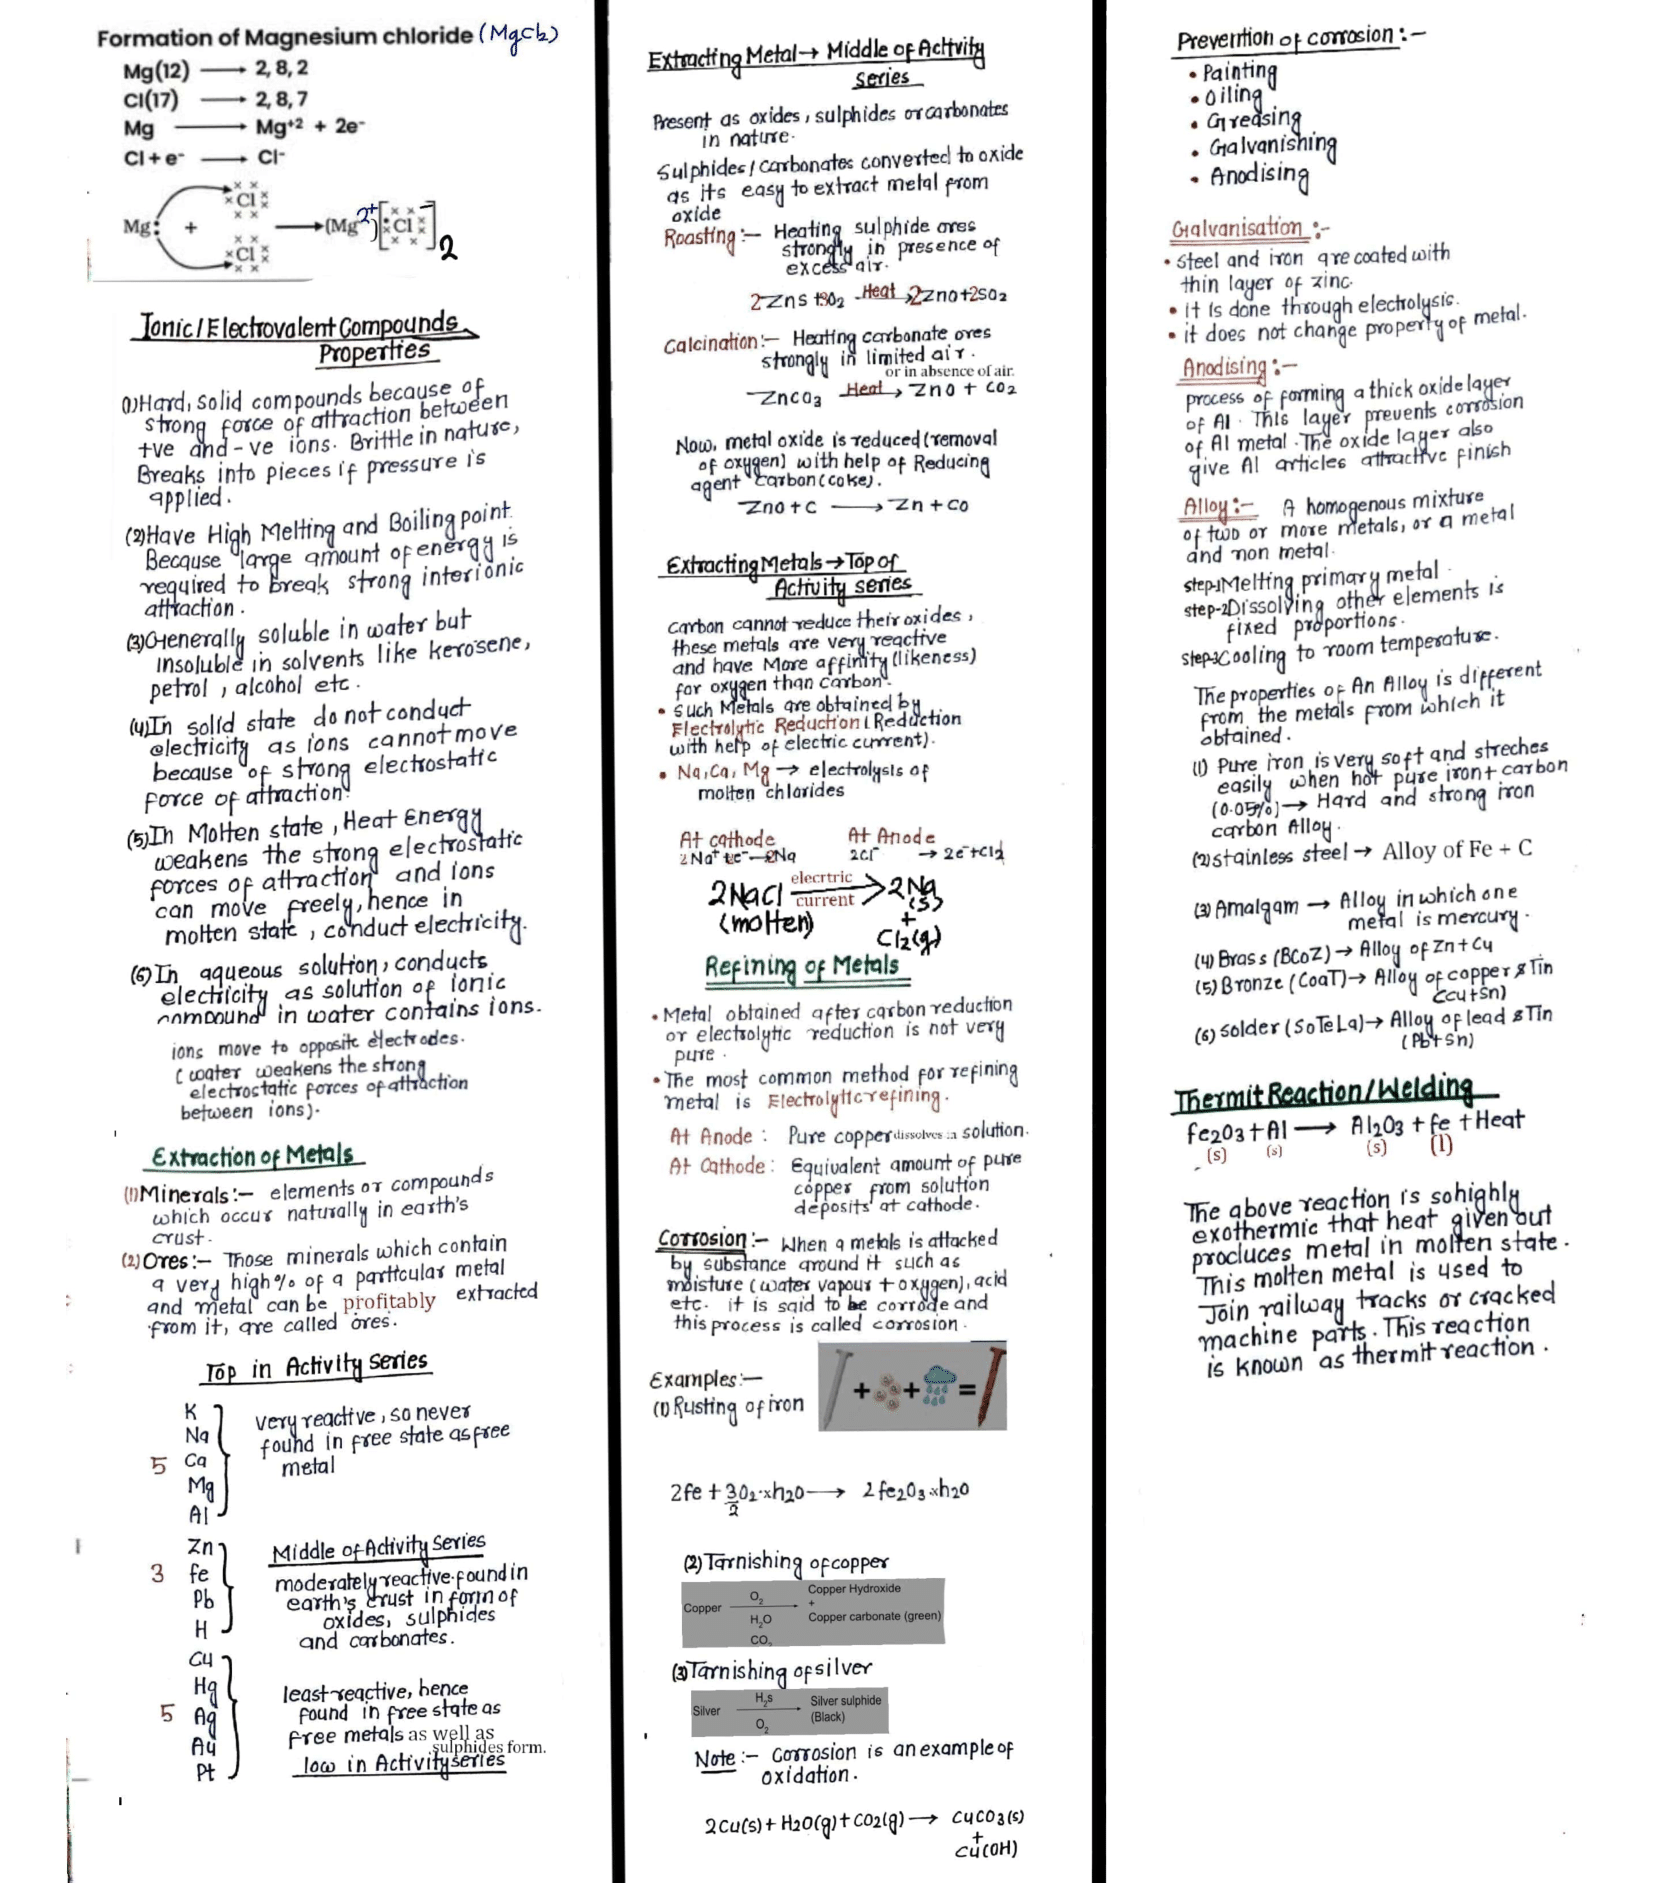 Formation of Magnesium chloride (MgCl2)
Mg(12) ⟶ 2, 8, 2
Cl(17) ⟶ 2, 8, 7
Mg ⟶ Mg+2 + 2e-
Cl + e- ⟶ Cl-
Mg: + Cl Cl ⟶ (Mg2+) [Cl]- 2
Ionic/Electrovalent Compounds
Properties
(1) Hard, solid compounds because of
strong force of attraction between
+ve and -ve ions. Brittle in nature,
Breaks into pieces if pressure is
applied.
(2) Have High Melting and Boiling point
Because large amount of energy is
required to break strong interionic
attraction.
(3) Generally soluble in water but
insoluble in solvents like kerosene,
petrol, alcohol etc.
(4) In solid state do not conduct
electricity as ions cannot move
because of strong electrostatic
force of attraction.
(5) In Molten state, Heat Energy
weakens the strong electrostatic
forces of attraction and ions
can move freely, hence in
molten state, conduct electricity.
(6) In aqueous solution, conducts
electricity as solution of ionic
compound in water contains ions.
ions move to opposite electrodes.
(water weakens the strong
electrostatic forces of attraction
between ions).
Extraction of Metals
(1) Minerals:- elements or compounds
which occur naturally in earth's
crust.
(2) Ores:- Those minerals which contain
a very high % of a particular metal
and metal can be profitably extracted
from it, are called ores.
Top in Activity Series
K
Na
5 Ca
Mg
Al
very reactive, so never
found in free state as free
metal
Zn
3 fe
Pb
H
Middle of Activity Series
moderately reactive. found in
earth's crust in form of
oxides, sulphides
and carbonates.
Cu
Hg
5 Ag
Au
Pt
least reactive, hence
found in free state as
free metals as well as
sulphides form.
low in Activity series
Extracting Metal → Middle of Activity
Series
Present as oxides, sulphides or carbonates
in nature.
Sulphides/Carbonates converted to oxide
as its easy to extract metal from
oxide
Roasting:- Heating sulphide ores
strongly in presence of
excess air.
2Zns + 3O2 Heat → 2Zno + 2SO2
Calcination:- Heating carbonate ores
strongly in limited air.
or in absence of air.
ZnCO3 Heat → ZnO + CO2
Now, metal oxide is reduced (removal
of oxygen) with help of Reducing
agent Carbon (coke).
Zno + C ⟶ Zn + Co
Extracting Metals → Top of
Activity series
Carbon cannot reduce their oxides,
these metals are very reactive
and have More affinity (likeness)
for oxygen than Carbon.
• Such Metals are obtained by
Electrolytic Reduction (Reduction
with help of electric current).
• Na, Ca, Mg → electrolysis of
molten chlorides
At cathode At Anode
2Na+ + 2e- → 2Na 2Cl- → 2e- + Cl2
2NaCl elecrtric current → 2Na
(molten) (s)
+
Cl2(g)
Refining of Metals
• Metal obtained after carbon reduction
or electrolytic reduction is not very
pure.
• The most common method for refining
metal is Electrolytic refining.
At Anode: Pure copper dissolves in solution.
At Cathode: Equivalent amount of pure
copper from solution
deposits at cathode.
Corrosion:- When a metals is attacked
by substance around it such as
moisture (water vapour + oxygen), acid
etc. it is said to be corrode and
this process is called corrosion.
Examples:-
(1) Rusting of iron
+ + =
2fe + 3/2 O2·xh2o ⟶ 2fe2O3·xh2o
(2) Tarnishing of copper
Copper O2 H2O CO2 ⟶ Copper Hydroxide
+
Copper carbonate (green)
(3) Tarnishing of silver
Silver H2s O2 ⟶ Silver sulphide
(Black)
Note:- Corrosion is an example of
oxidation.
2Cu(s) + H2O(g) + CO2(g) ⟶ CuCO3(s)
+
Cu(OH)
Prevention of corrosion:-
• Painting
• Oiling
• Greasing
• Galvanishing
• Anodising
Galvanisation:-
• Steel and iron are coated with
thin layer of zinc.
• it is done through electrolysis.
• it does not change property of metal.
Anodising:-
process of forming a thick oxide layer
of Al. This layer prevents corrosion
of Al metal. The oxide layer also
give Al articles attractive finish
Alloy:- A homogenous mixture
of two or more metals, or a metal
and non metal.
step-1 Melting primary metal
step-2 Dissolving other elements is
fixed proportions.
step-3 Cooling to room temperature.
The properties of An Alloy is different
from the metals from which it
obtained.
(1) Pure iron is very soft and streches
easily when hot pure iron + carbon
(0.05%) → Hard and strong iron
carbon Alloy.
(2) stainless steel → Alloy of Fe + C
(3) Amalgam → Alloy in which one
metal is mercury.
(4) Brass (BCoZ) → Alloy of Zn + Cu
(5) Bronze (CoaT) → Alloy of copper & Tin
(cu+Sn)
(6) Solder (SoTeLa) → Alloy of lead & Tin
(Pb+Sn)
Thermit Reaction/Welding
fe2O3 + Al ⟶ Al2O3 + fe + Heat
(s) (s) (s) (l)
The above reaction is so highly
exothermic that heat given out
produces metal in molten state.
This molten metal is used to
Join railway tracks or cracked
machine parts. This reaction
is known as thermit reaction.